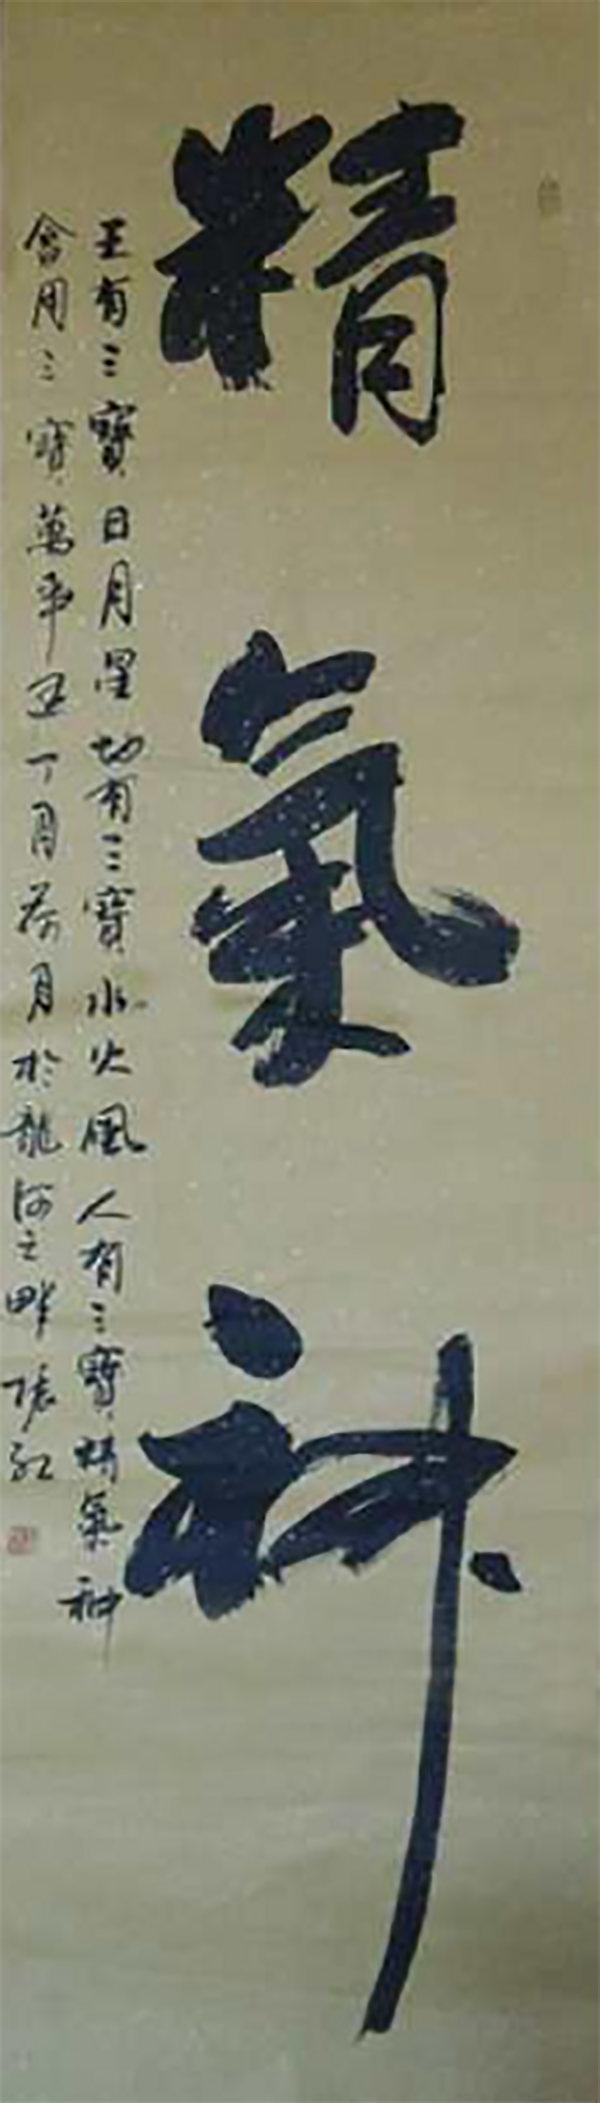 精氣神
王有三寶日月星地有三寶水火風人有三寶精氣神
會用三寶萬事正丁酉荷月於龍河之畔張紅